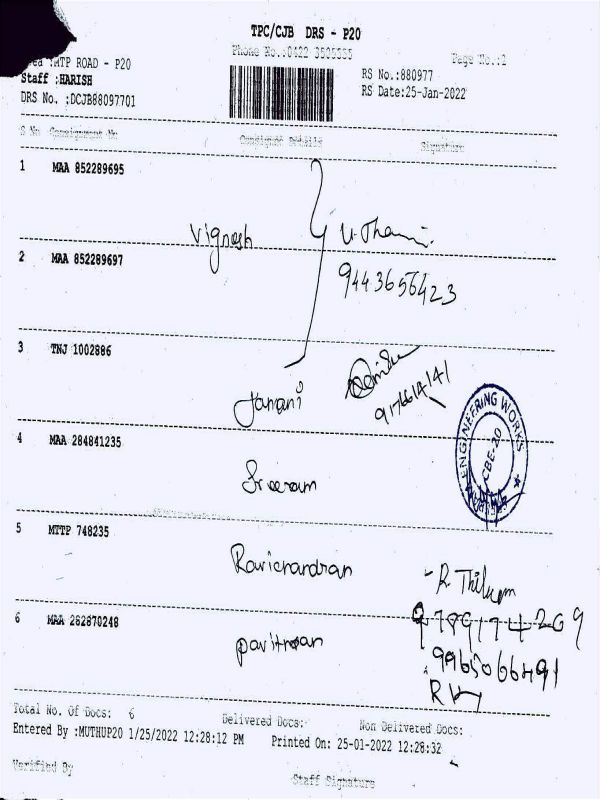 TPC/CJB DRS - P20
Phone No.:0422 3505355
Page No.:1
:MTP ROAD - P20
RS No.:880977
Staff :HARISH
RS Date:25-Jan-2022
DRS No. :DCJB88097701
S No Consignment No Consignee Details Signature
1 MAA 852289695
Vignesh
9443656423
2 MAA 852289697
3 TNJ 1002886
Janani
9176614141
ENGINEERING WORKS
CBE-20
4 MAA 284841235
Sreeram
5 MTTP 748235
Ravichandran
R. Thilkam
9789174209
6 MAA 282870248
Pavithran
9965066491
Total No. Of Docs: 6 Delivered Docs: Non Delivered Docs:
Entered By :MUTHUP20 1/25/2022 12:28:12 PM Printed On: 25-01-2022 12:28:32
Verified By
Staff Signature